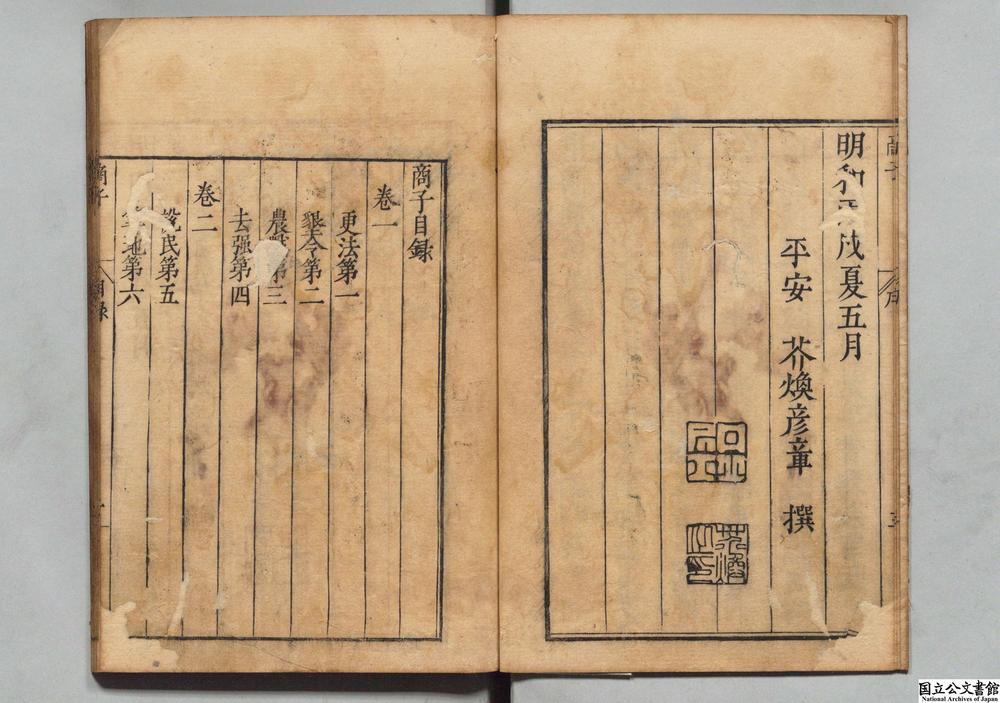 明和 戌夏五月
平安 芥煥彦章 撰
商子目録
卷一
更法第一
墾令第二
農戰第三
去强第四
卷二
說民第五
算地第六
商子 目録
国立公文書館
National Archives of Japan